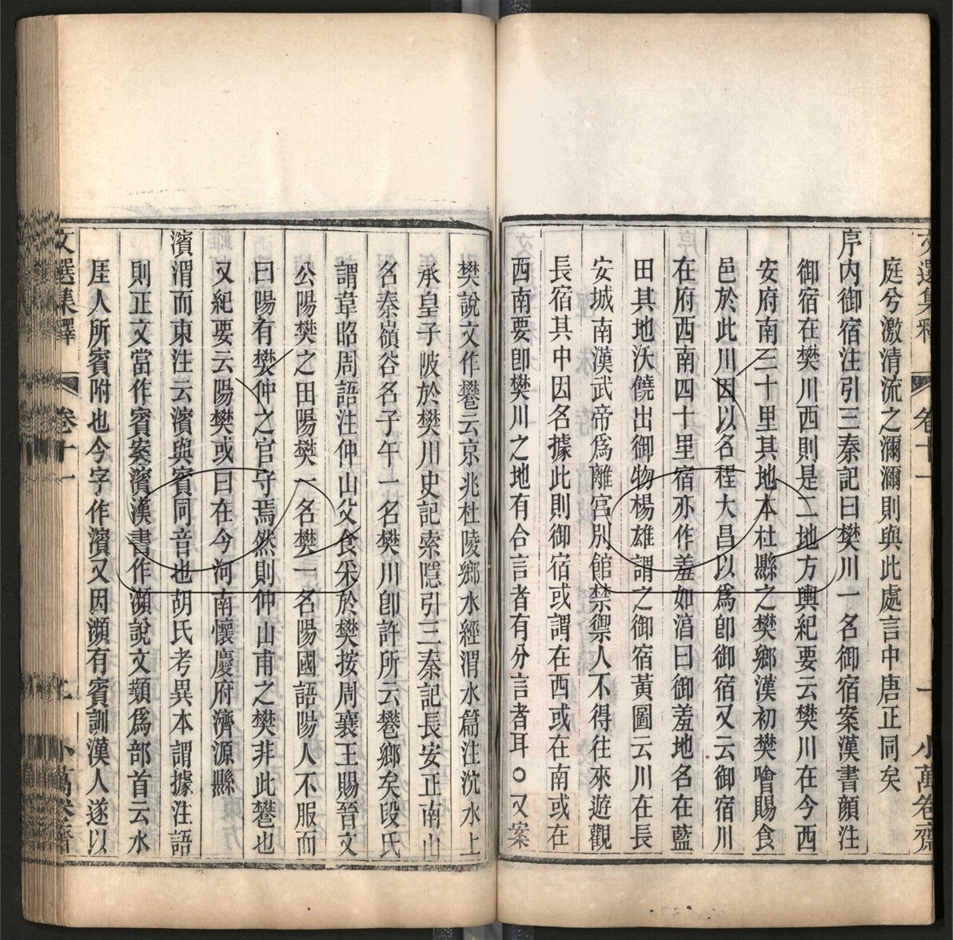 庭兮激清流之瀰瀰則與此處言中唐正同矣
序內御宿注引三秦記曰樊川一名御宿案漢書顏注
御宿在樊川西則是二地方輿紀要云樊川在今西
安府南三十里其地本杜縣之樊鄉漢初樊噲賜食
邑於此川因以名程大昌以爲卽御宿又云御宿川
在府西南四十里宿亦作羞如淊曰御羞地名在藍
田其地沃饒出御物楊雄謂之御宿黃圖云川在長
安城南漢武帝爲離宮別館禁禦人不得往來遊觀
長宿其中因名據此則御宿或謂在西或在南或在
西南要卽樊川之地有合言者有分言者耳○又案
樊說文作鄻云京兆杜陵鄉水經渭水篇注沈水上
承皇子陂於樊川史記索隱引三秦記長安正南山
名秦嶺谷名子午一名樊川卽許所云鄻鄉矣段氏
謂韋昭周語注仲山父食采於樊按周襄王賜晉文
公陽樊之田陽樊一名樊一名陽國語陽人不服而
曰陽有樊仲之官守焉然則仲山甫之樊非此鄻也
又紀要云陽樊或曰在今河南懷慶府濟源縣
濱渭而東注云濱與賓同音也胡氏考異本謂據注語
則正文當作賓案濱漢書作瀕說文瀕爲部首云水
厓人所賓附也今字作濱又因瀕有賓訓漢人遂以
文選集釋 卷十一 小萬卷齋